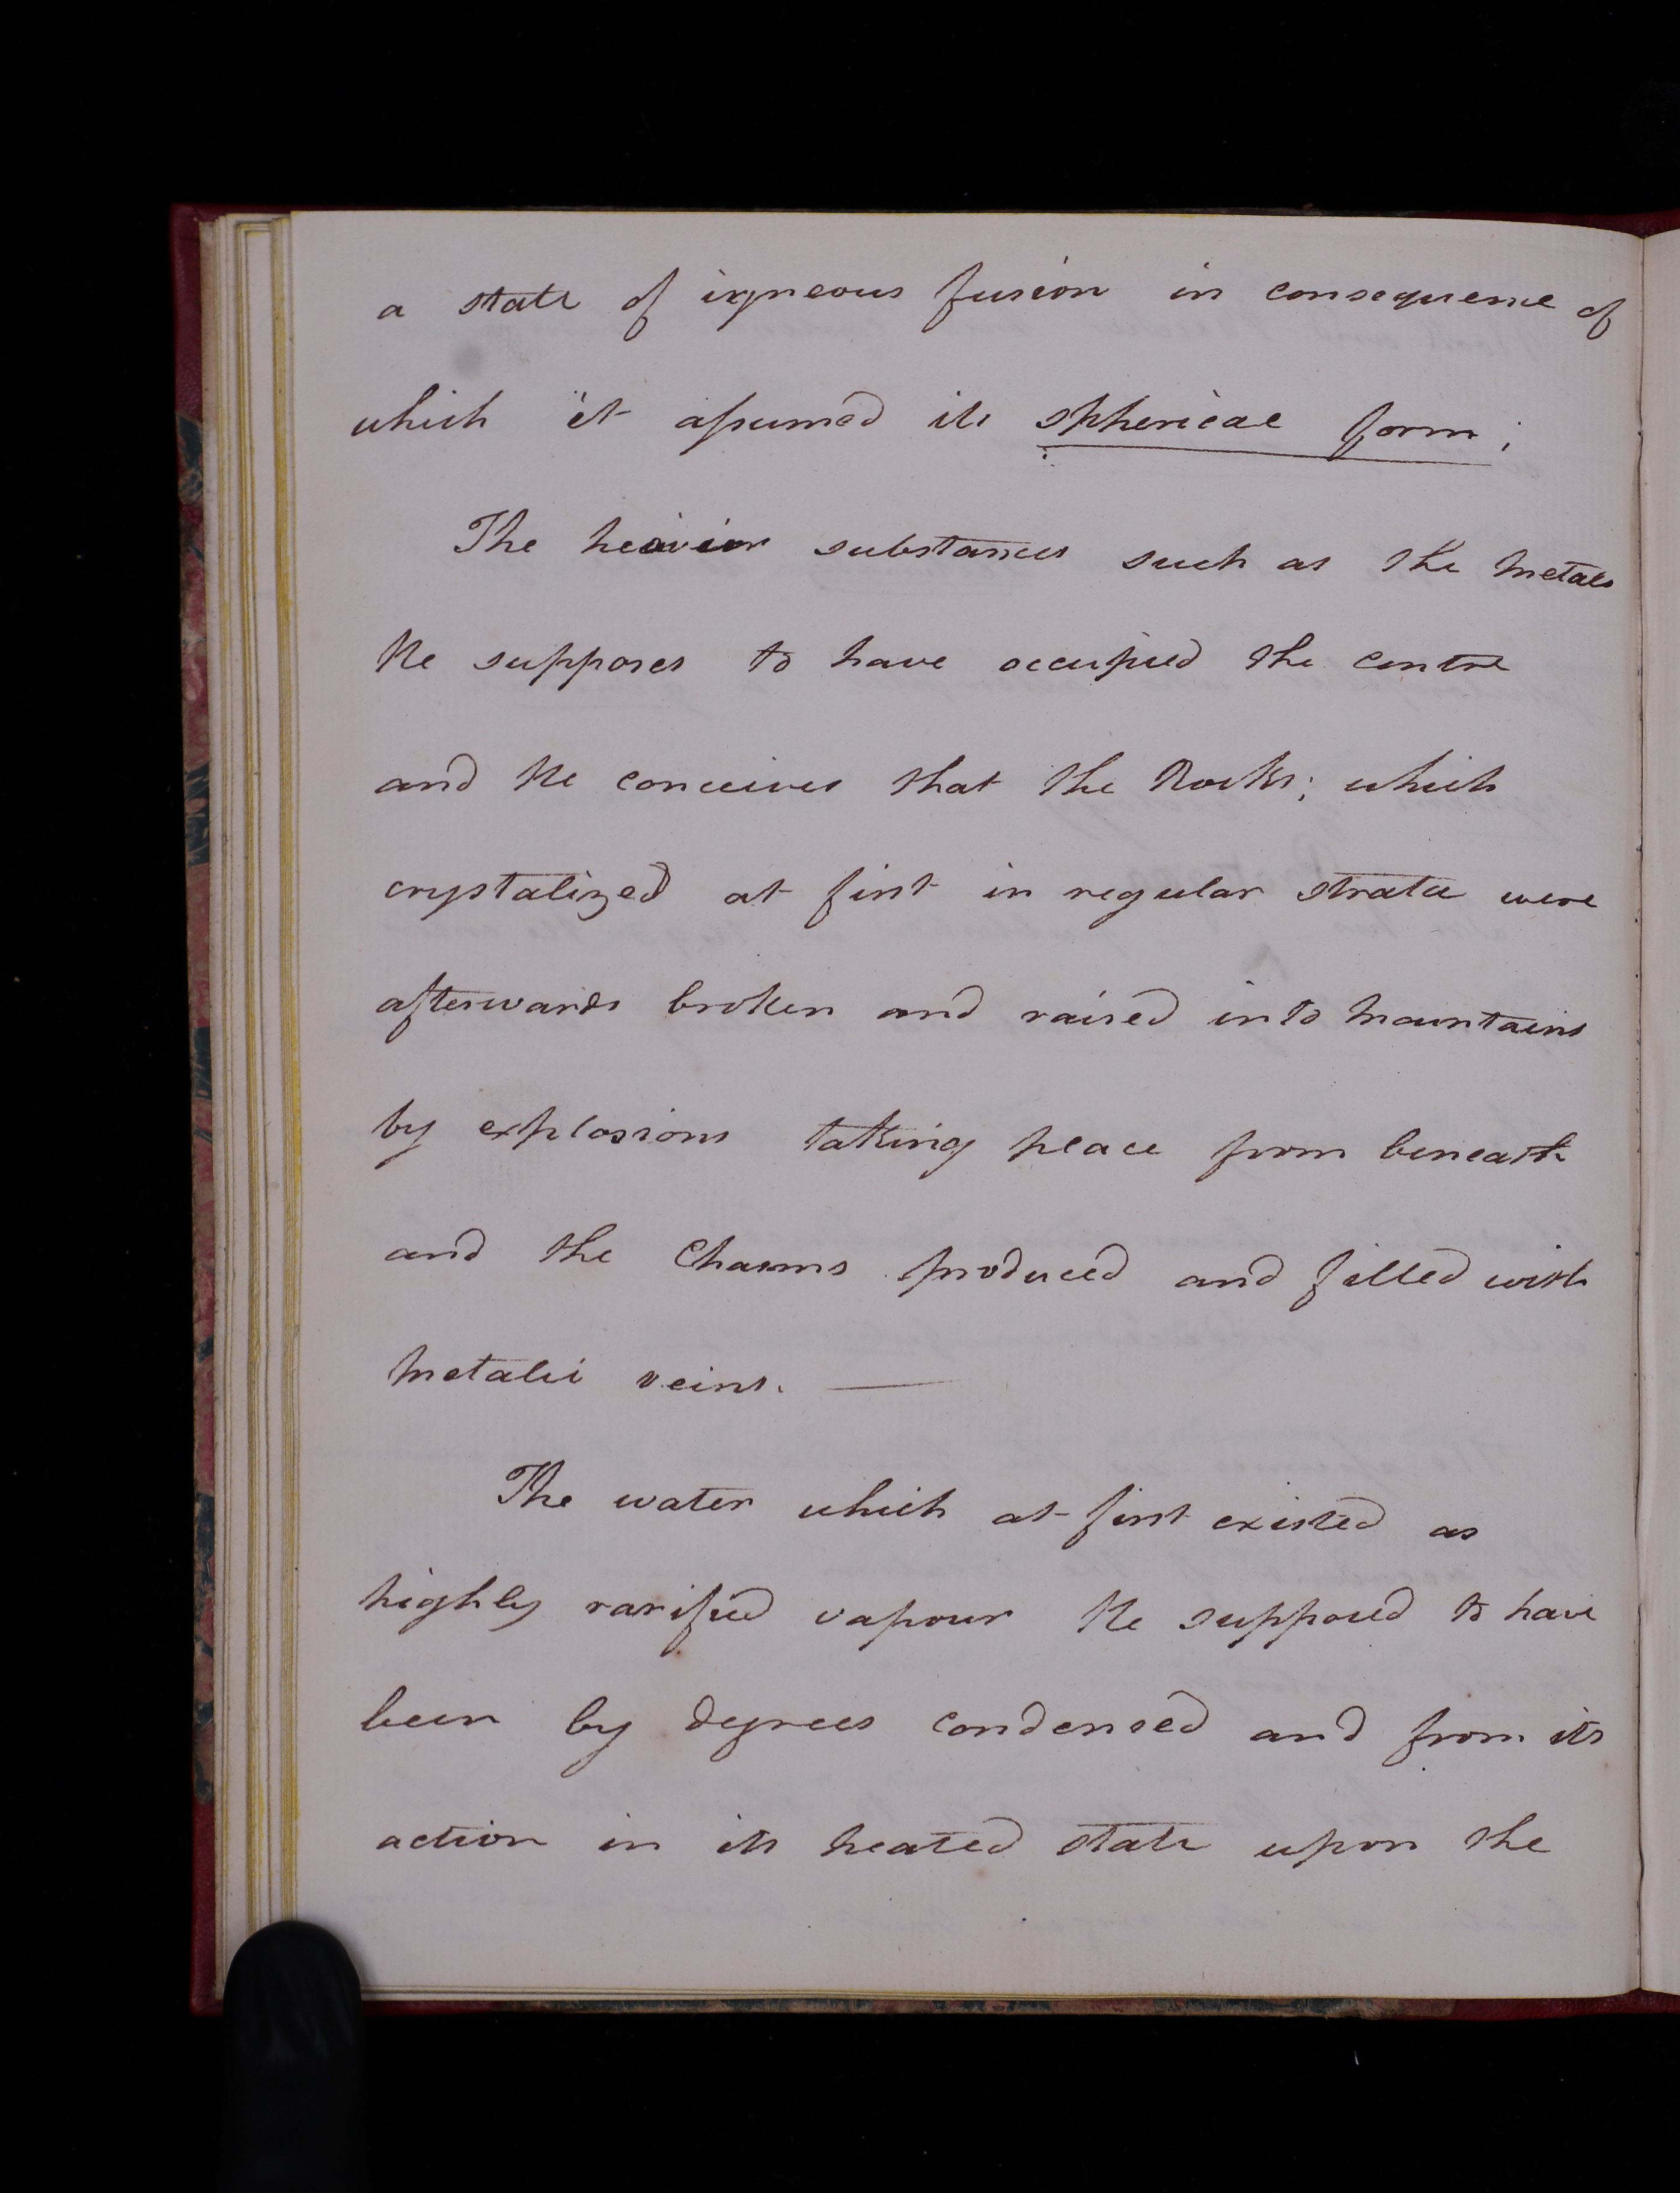 a state of igneous fusion in consequence of
which it assumed its spherical form;
The heavier substances such as the metals
He supposes to have occupied the centre
and He conceives that the Rocks; which
crystalized at first in regular strata were
afterwards broken and raised into mountains
by explosions taking place from beneath
and the Chasms produced and filled with
metalic veins. —
The water which at first existed as
highly rarified vapour He supposed to have
been by degrees condensed and from its
action in its heated state upon the